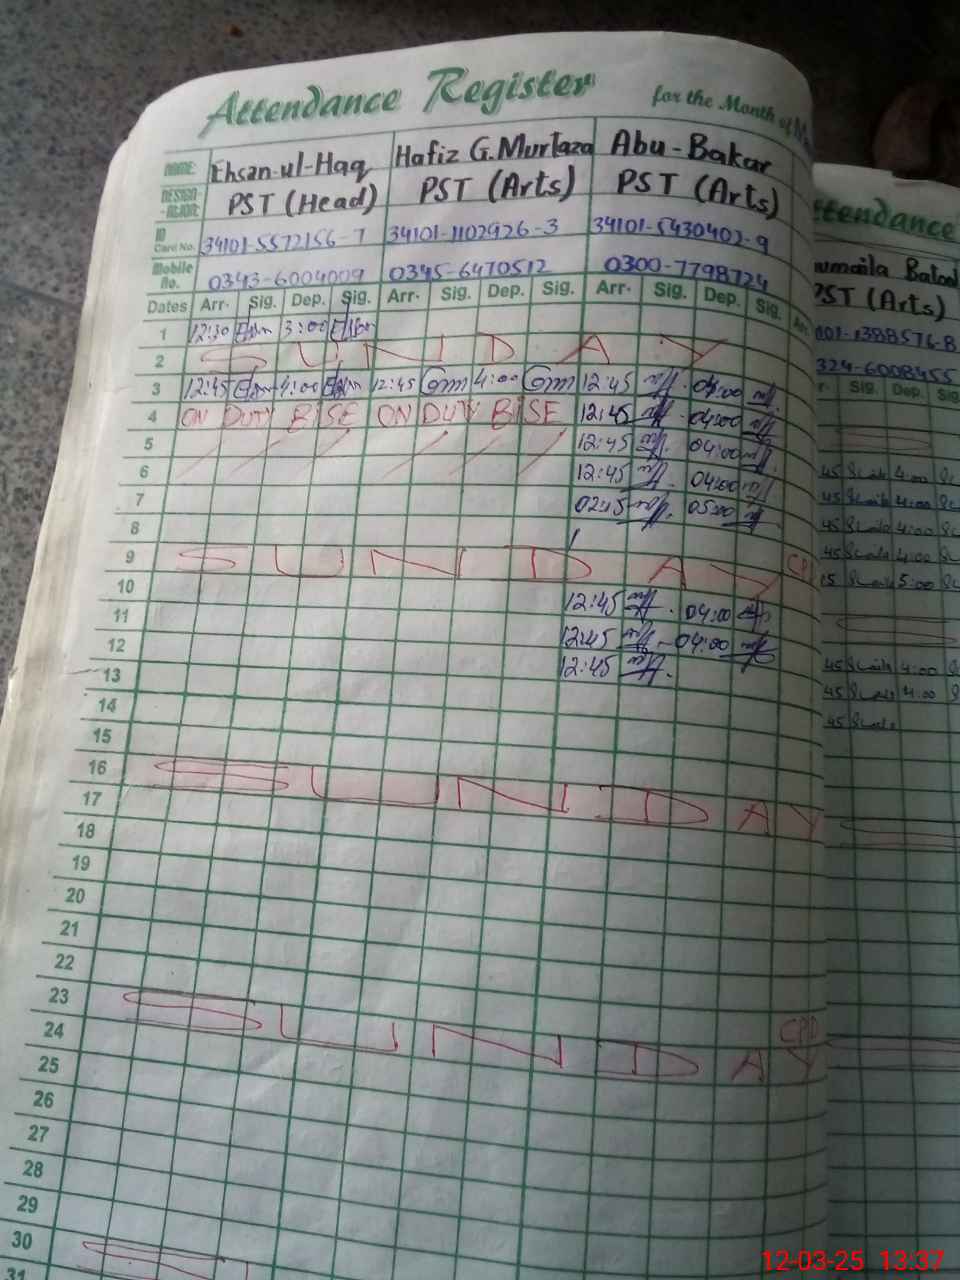 Attendance Register for the Month of
NAME: Ehsan-ul-Haq Hafiz G.Murtaza Abu-Bakar
DESIGN-ATION: PST (Head) PST (Arts) PST (Arts)
ID Card No. 34101-5572156-7 34101-1102926-3 34101-5430402-9
Mobile No. 0343-6004009 0345-6470512 0300-7798724
Dates Arr. Sig. Dep. Sig. Arr. Sig. Dep. Sig. Arr. Sig. Dep. Sig. Arr.
1 12:30 3:00
2 SUNDAY
3 12:45 4:00 12:45 4:00 12:45 04:00
4 ON DUTY BISE ON DUTY BISE 12:45 04:00
5 12:45 04:00
6 12:45 04:00
7 02:15 05:00
8
9 SUNDAY
10
11 12:45 04:00
12 12:45 04:00
13 12:45
14
15
16 SUNDAY
17
18
19
20
21
22
23 SUNDAY
24
25
26
27
28
29
30
31
ttendance
umaila Batool
PST (Arts)
101-1388576-8
324-6008455
Sig. Dep. Sig.
45 4:00
45 4:00
45 4:00
45 4:00
15 5:00
45 4:00
45 4:00
45
12-03-25 13:37